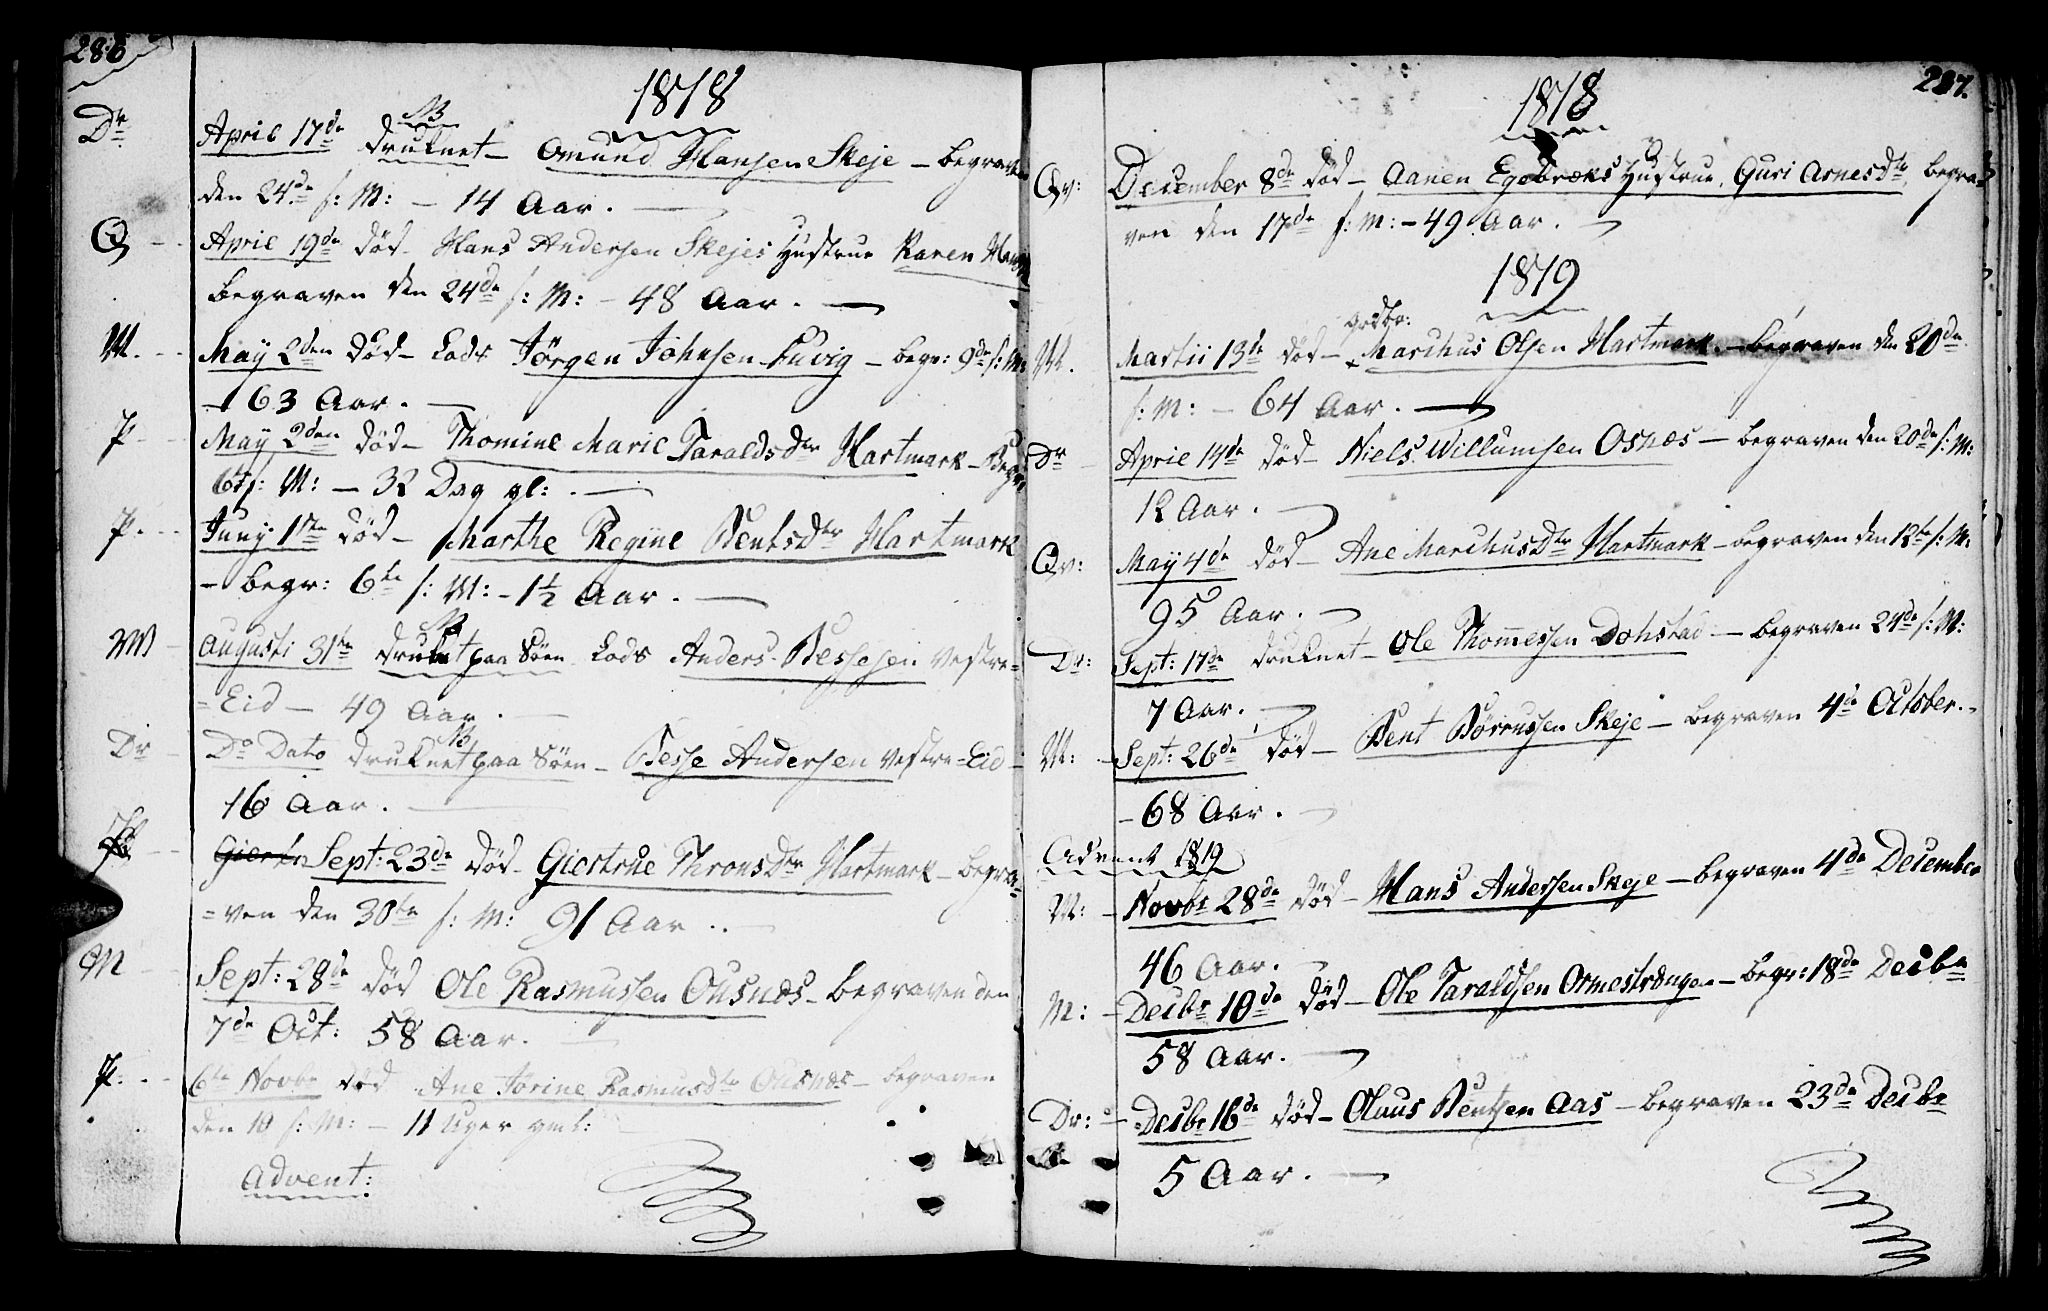 286
1818
Dr April 17de NB druknet – Omund Hansen Skeje – begraven
den 24de s: M: – 14 Aar.
Q April 19de død – Hans Andersen Skejes Hustrue Karen
begraven den 24de s: M: – 48 Aar.
M. May 2den død – Lods Jörgen Johnsen Luvig – begr: 9de s: M:
– 63 Aar.
P May 2den død – Thomine Marie Taraldsdtr Hartmark – Begr:
6te s: M: – 32 Dag gl:
P. Juny 1ste død – Marthe Regine Bentsdtr Hartmark
– begr: 6te s: M: – 1½ Aar.
M Augusti 31te NB druknet paa Söen Lods Anders Bessesen Vestre=
=Eid – 49 Aar.
Dr Do Dato NB druknet paa Söen – Besse Andersen Vestre=Eid –
16 Aar.
Sept: 23de død – Giertrue Thronsdtr Hartmark – begra=
=ven den 30te s: M: 91 Aar..
M Sept: 28de død Ole Rasmussen Ousnæs – begraven den
7de Oct: 58 Aar.
P. 6te Novbr død Ane Jörine Rasmusdtr Ousnæs – begraven
den 10 s: M: – 11 Uger gml:
Advent:
287.
1818
Qv: December 8de død – Aanen Egebræks Hustrue, Guri Arnesdtr, begra=
ven den 17de s: M: – 49 Aar.
1819
M. Martii 13de død – grdbr: Marchus Olsen Hartmark – begraven den 20de
s: M: – 64 Aar.
Dr April 14de død – Niels Willumsen Osnæs – begraven den 20de s: M:
12 Aar.
Qv: May 4de død – Ane Marchusdtr Hartmark – begraven den 12te s: M:
95 Aar.
Dr: Sept: 17de druknet – Ole Thommesen Dohstad – begraven 24de s: M:
7 Aar.
M: – Sept: 26de død – Bent Börresen Skeje – begraven 4de October.
– 68 Aar.
Advent 1819
M: – Novbr 28de død – Hans Andersen Skeje – begraven 4de December
46 Aar.
M: – Decbr 10de død – Ole Taraldsen Ormestrangen – begr: 18de Decbr
58 Aar.
Dr: – Decbr 16de død – Olaus Bentsen Aas – begraven 23de Decbr
5 Aar.